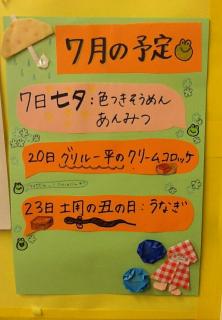 7月の予定
7日七夕:色つきそうめん
あんみつ
20日 グリル一平のクリームコロッケ
23日 土用の丑の日:うなぎ